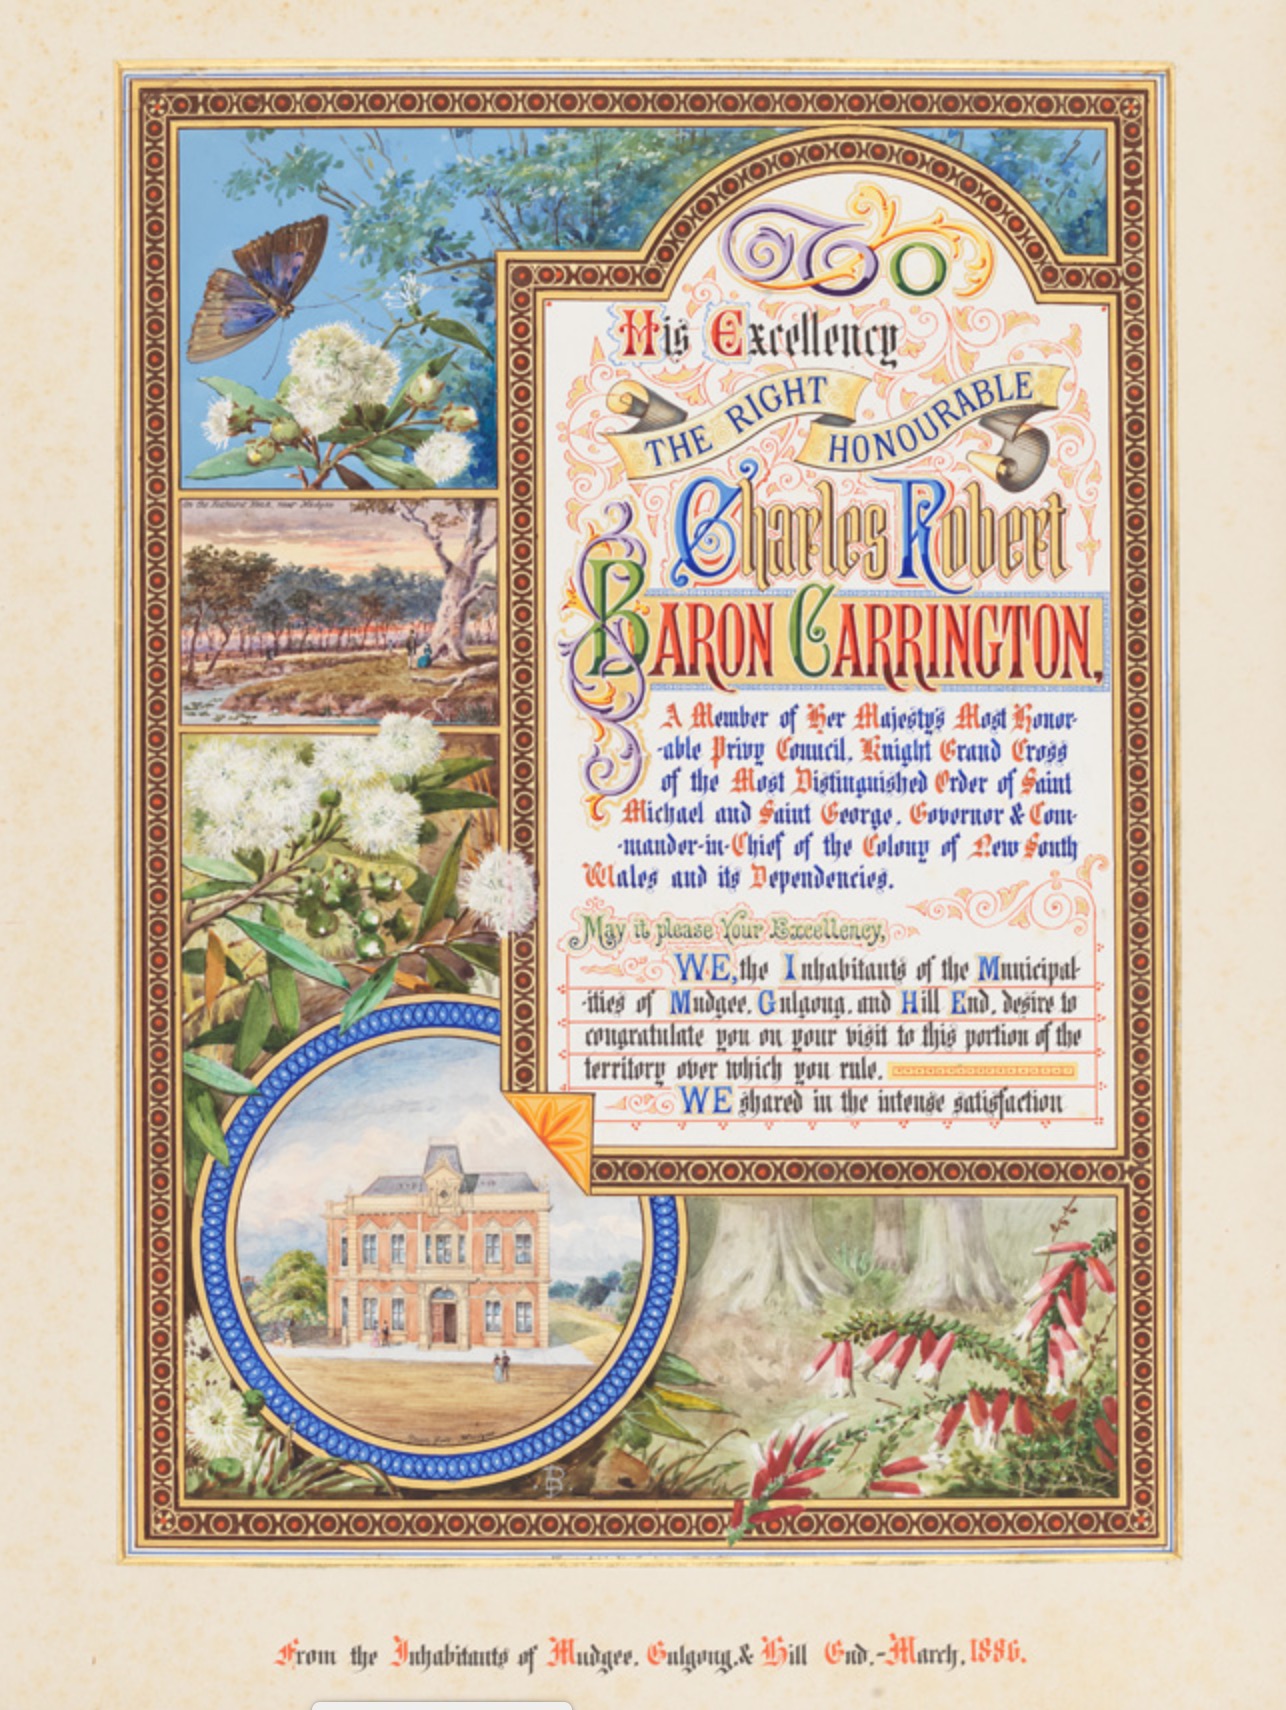 To
His Excellency
THE RIGHT
HONOURABLE
Charles Robert
BARON CARRINGTON,
A Member of Her Majesty's Most Honor-
-able Privy Council, Knight Grand Cross
of the Most Distinguished Order of Saint
Michael and Saint George, Governor & Com-
-mander-in-Chief of the Colony of New South
Wales and its Dependencies.
May it please Your Excellency,
WE, the Inhabitants of the Municipal-
-ities of Mudgee, Gulgong, and Hill End, desire to
congratulate you on your visit to this portion of the
territory over which you rule.
WE shared in the intense satisfaction
On the Bathurst Road, near Mudgee
Town Hall Mudgee
From the Inhabitants of Mudgee, Gulgong, & Hill End,-March, 1886.